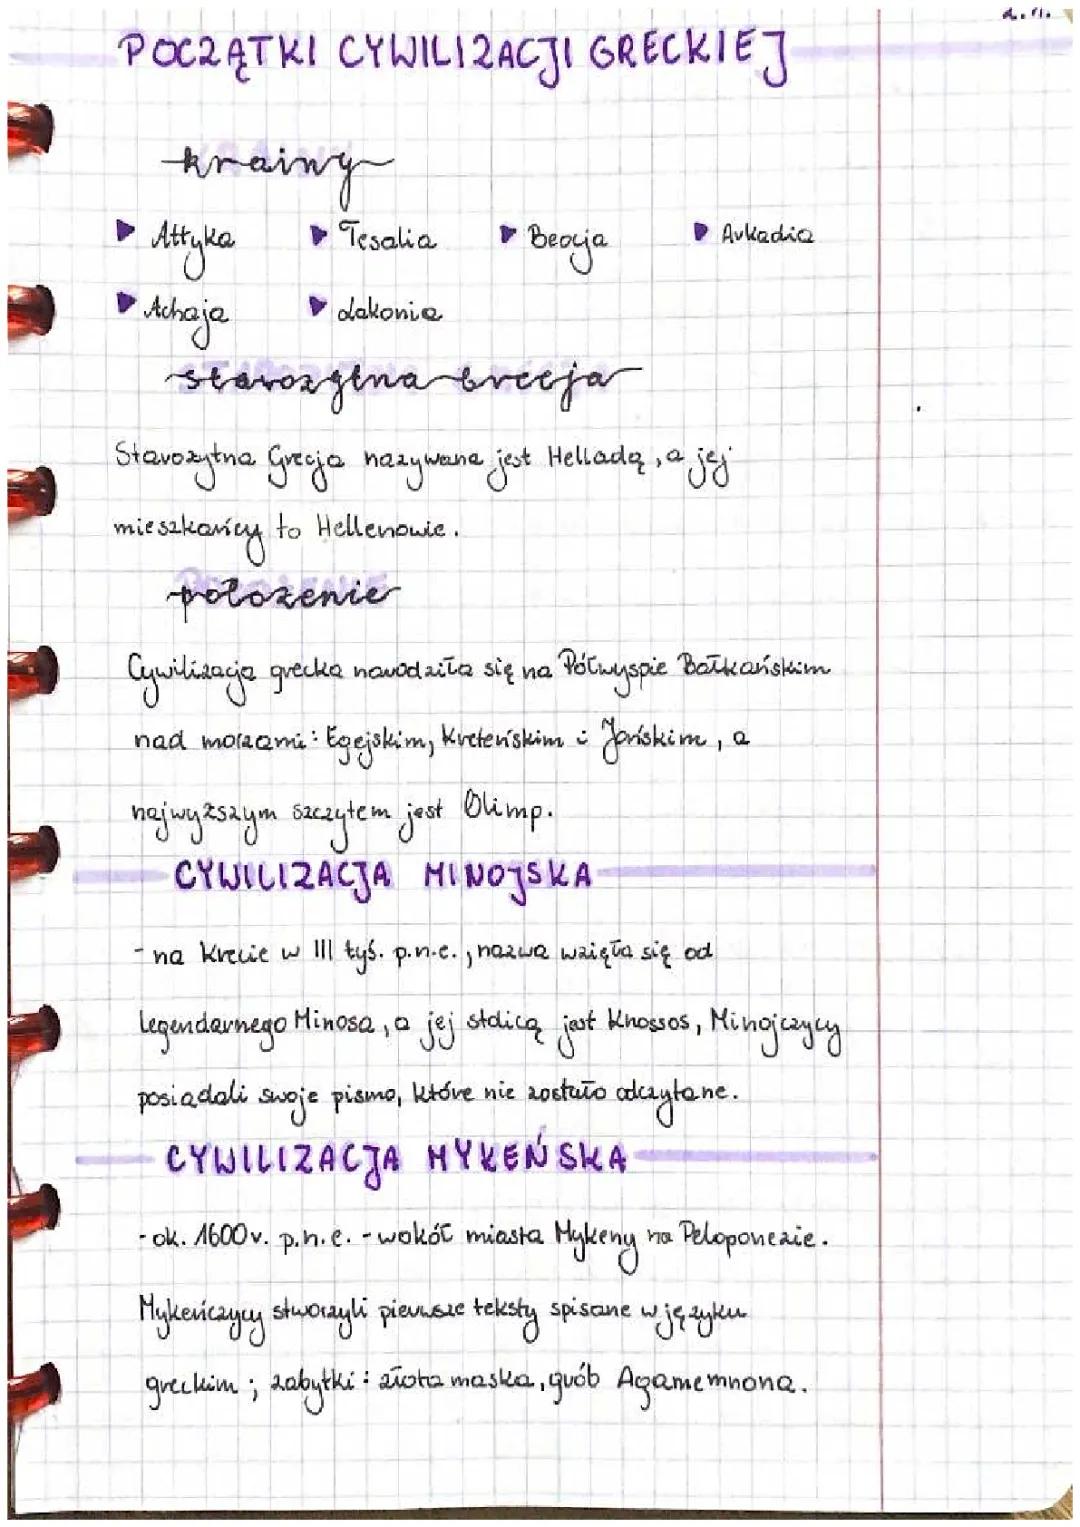 2.11.
POCZĄTKI CYWILIZACJI GRECKIEJ
krainy
▶ Attyka ▶ Tesalia ▶ Beocja ▶ Arkadia
▶ Achaja ▶ Lakonia
starożytna Grecja
Starożytna Grecja nazywana jest Helladą, a jej
mieszkańcy to Hellenowie.
położenie
Cywilizacja grecka narodziła się na Półwyspie Bałkańskim
nad morzami: Egejskim, Kreteńskim i Jońskim, a
najwyższym szczytem jest Olimp.
CYWILIZACJA MINOJSKA
- na Krecie w III tyś. p.n.e., nazwa wzięła się od
legendarnego Minosa, a jej stolicą jest Knossos, Minojczycy
posiadali swoje pismo, które nie zostało odczytane.
CYWILIZACJA MYKEŃSKA
- ok. 1600r. p.n.e. - wokół miasta Mykeny na Peloponezie.
Mykeńczycy stworzyli pierwsze teksty spisane w języku
greckim; zabytki: złota maska, grób Agamemnona.